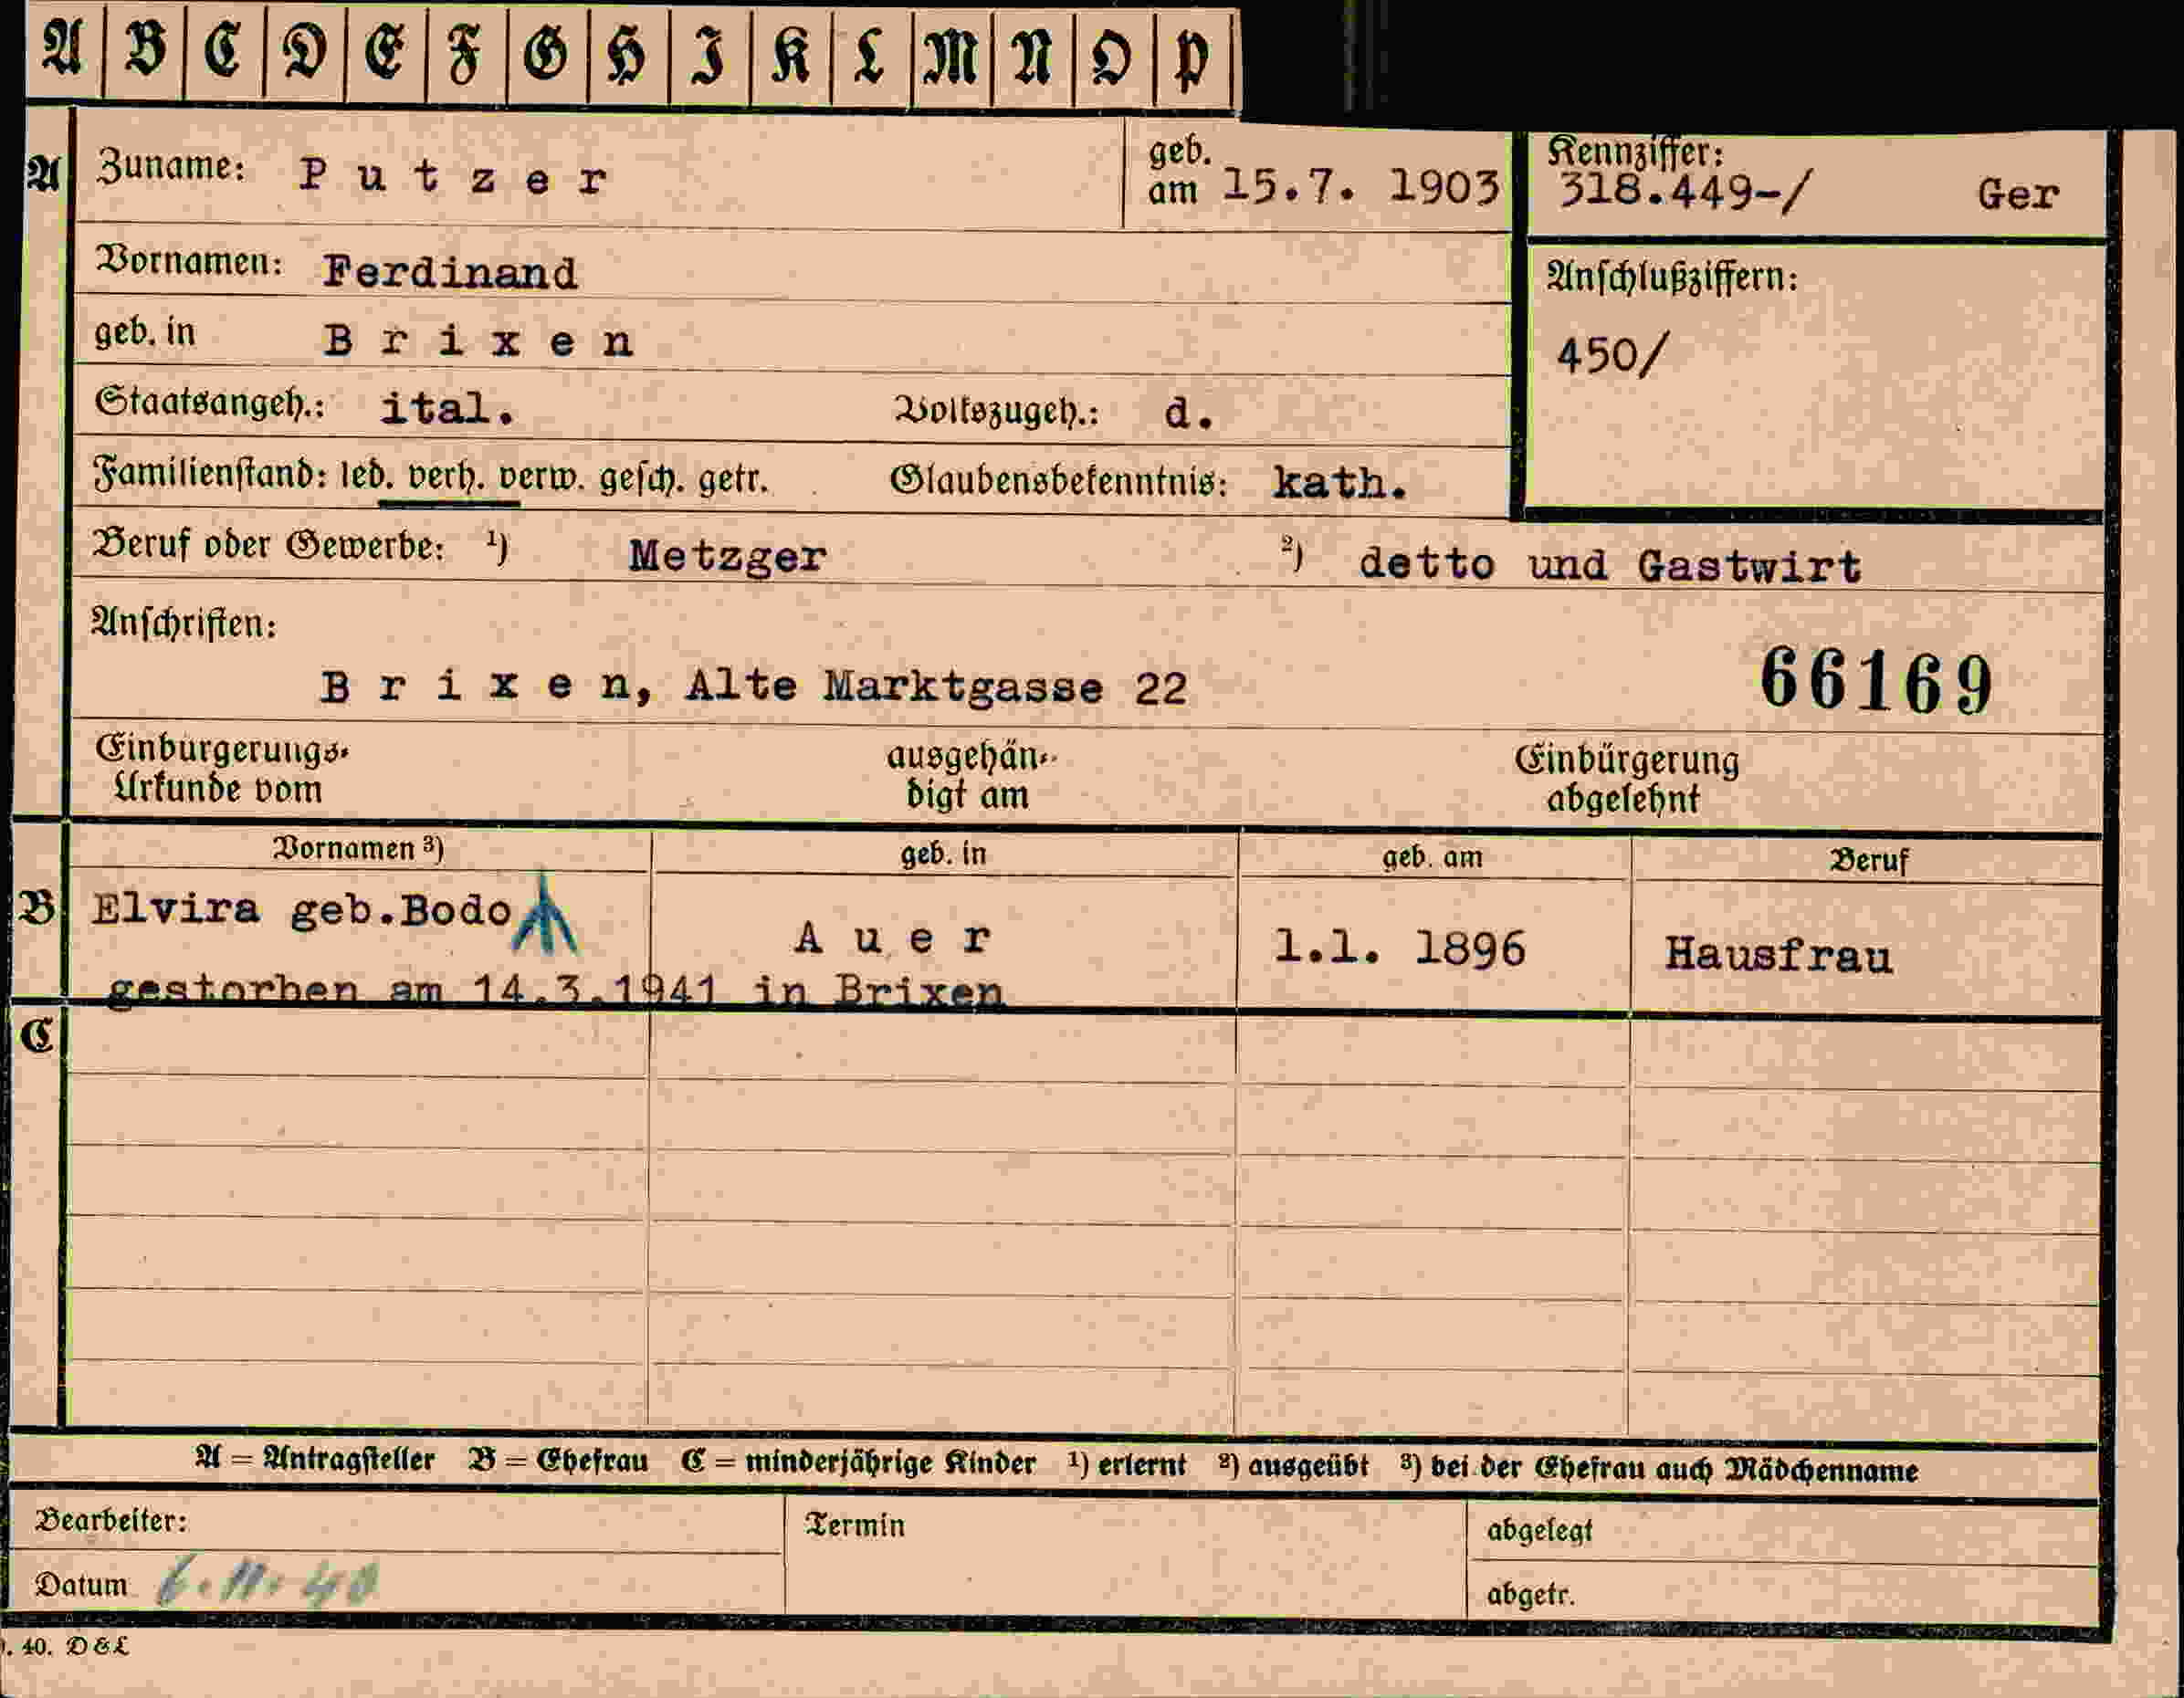 A B C D E F G H I K L M N O P
A Zuname: Putzer geb. am 15.7. 1903 Kennziffer: 318.449-/ Ger
Vornamen: Ferdinand
geb. in Brixen
Anschlußziffern:
450/
Staatsangeh.: ital. Volkszugeh.: d.
Familienstand: led. verh. verw. gesch. getr. Glaubensbekenntnis: kath.
Beruf oder Gewerbe: ¹) Metzger ²) detto und Gastwirt
Anschriften:
Brixen, Alte Marktgasse 22 66169
Einbürgerungs- ausgehän- Einbürgerung
Urkunde vom digt am abgelehnt
Vornamen ³) geb. in geb. am Beruf
B Elvira geb.Bodo Auer 1.1. 1896 Hausfrau
gestorben am 14.3.1941 in Brixen
C
A = Antragsteller B = Ehefrau C = minderjährige Kinder ¹) erlernt ²) ausgeübt ³) bei der Ehefrau auch Mädchenname
Bearbeiter: Termin abgelegt
Datum 6.11.40 abgetr.
. 40. D&L